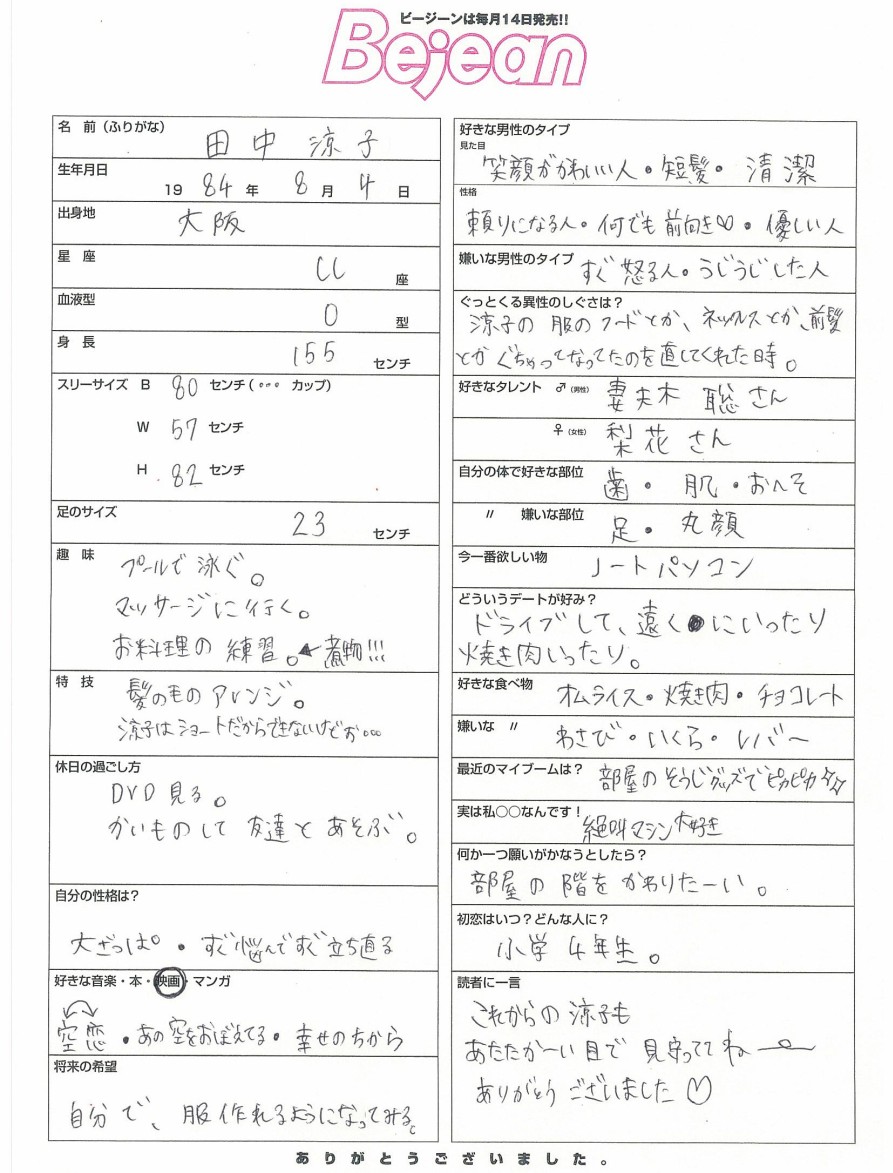 ビージーンは毎月14日発売!!
Bejean
名 前 (ふりがな)
田中 涼子
生年月日
19 84 年 8 月 4 日
出身地
大阪
星 座
しし 座
血液型
O 型
身 長
155 センチ
スリーサイズ B 80 センチ (... カップ)
W 57 センチ
H 82 センチ
足のサイズ
23 センチ
趣 味
プールで泳ぐ。
マッサージに行く。
お料理の練習。←煮物!!!
特 技
髪の毛のアレンジ。
涼子はショートだからできないけどぉ...
休日の過ごし方
DVD見る。
かいものして友達とあそぶ。
自分の性格は?
大ざっぱ。・すぐ悩んですぐ立ち直る
好きな音楽・本・映画・マンガ
空恋・あの空をおぼえてる・幸せのちから
将来の希望
自分で、服作れるようになってみる。
好きな男性のタイプ
見た目
笑顔がかわいい人・短髪・清潔
性格
頼りになる人・何でも前向き♡・優しい人
嫌いな男性のタイプ
すぐ怒る人・うじうじした人
ぐっとくる異性のしぐさは?
涼子の服のフードとか、ネックレスとか、前髪
とかぐちゃってなってたのを直してくれた時。
好きなタレント ♂(男性) 妻夫木 聡さん
♀(女性) 梨花さん
自分の体で好きな部位 歯・肌・おへそ
〃 嫌いな部位 足・丸顔
今一番欲しい物
ノートパソコン
どういうデートが好み?
ドライブして、遠くにいったり
焼き肉いったり。
好きな食べ物
オムライス・焼き肉・チョコレート
嫌いな 〃
わさび・いくら・レバー
最近のマイブームは? 部屋のそうじグッズでピカピカ☆☆
実は私○○なんです!
絶叫マシン大好き
何か一つ願いがかなうとしたら?
部屋の階をかわりたーい。
初恋はいつ?どんな人に?
小学4年生。
読者に一言
これからの涼子も
あたたか〜い目で見守っててねー
ありがとうございました♡
ありがとうございました。